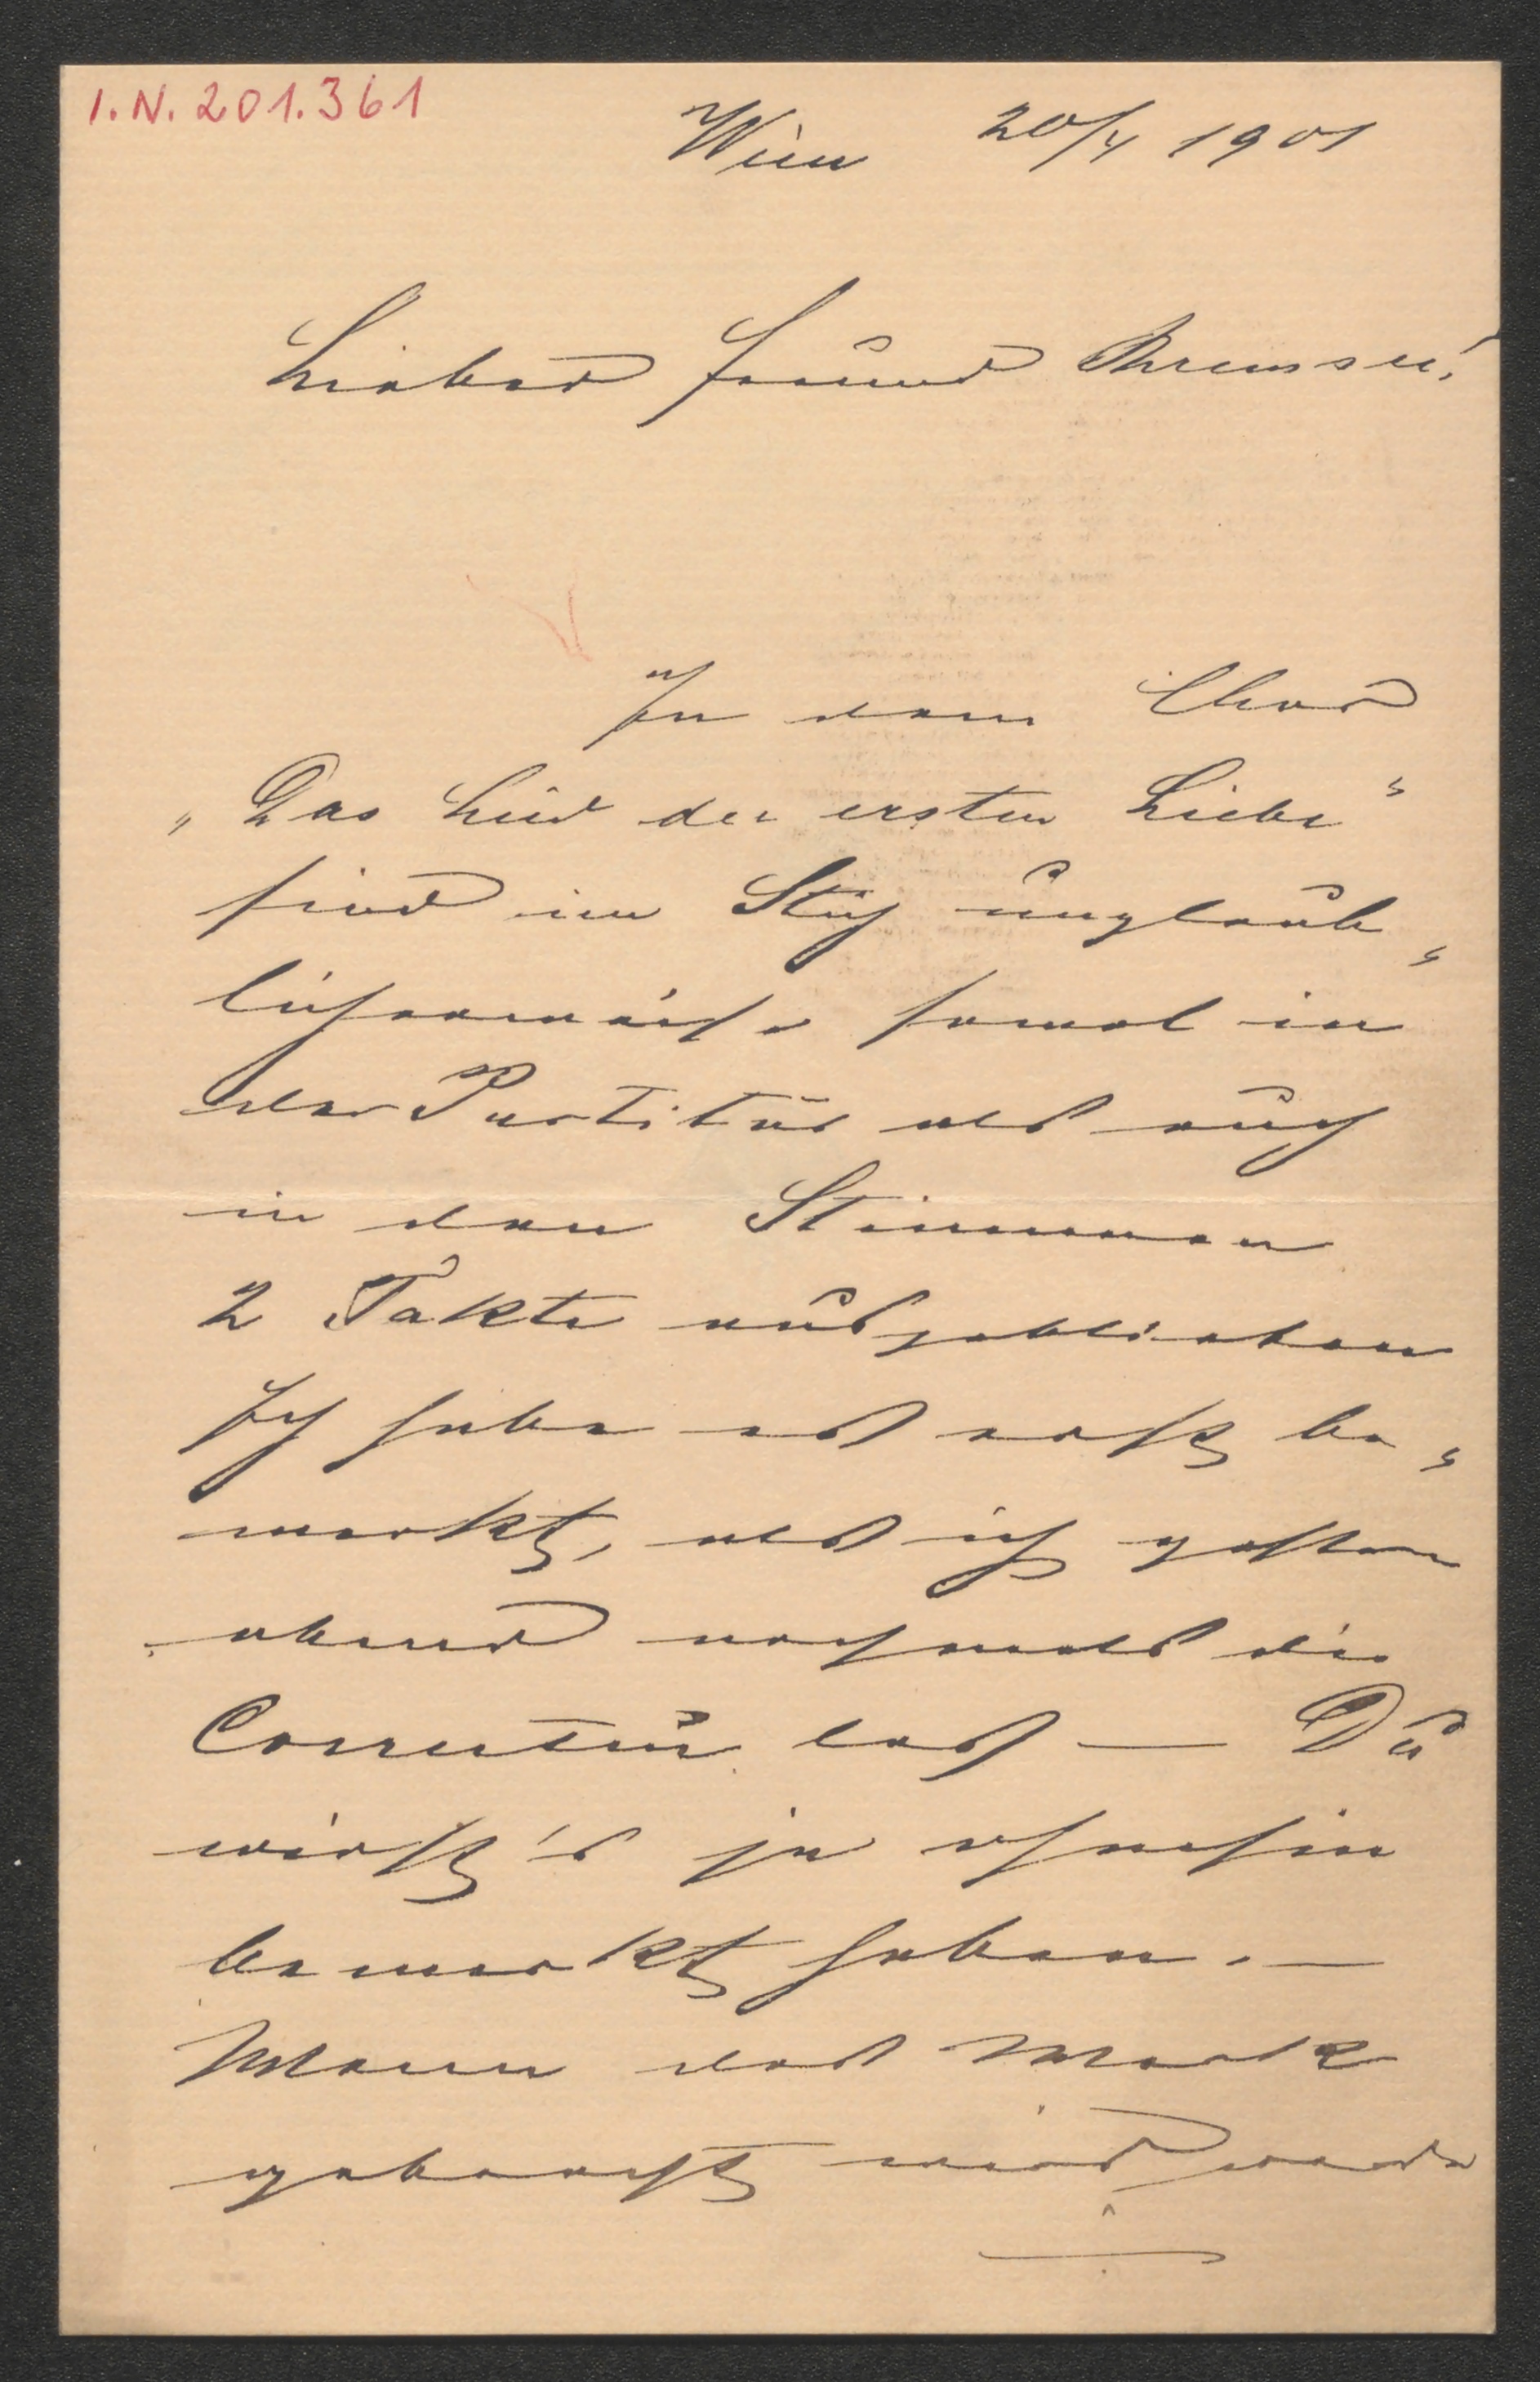 I.N. 201.361
Wien 20/4 1901
Lieber Freund
In dem Chor
„Das Lied der ersten Liebe"
sind im Stich unglaub„
licherweise sowol in
der Partitur als auch
in den Stimmen
2 Takte ausgeblieben
Ich habe es erst be„
merkt, als ich gestern
abend nochmals die
Correctur las — Du
wirst's ja ohnehin
bemerkt haben. —
Wenn das Werk
gebracht wird werde